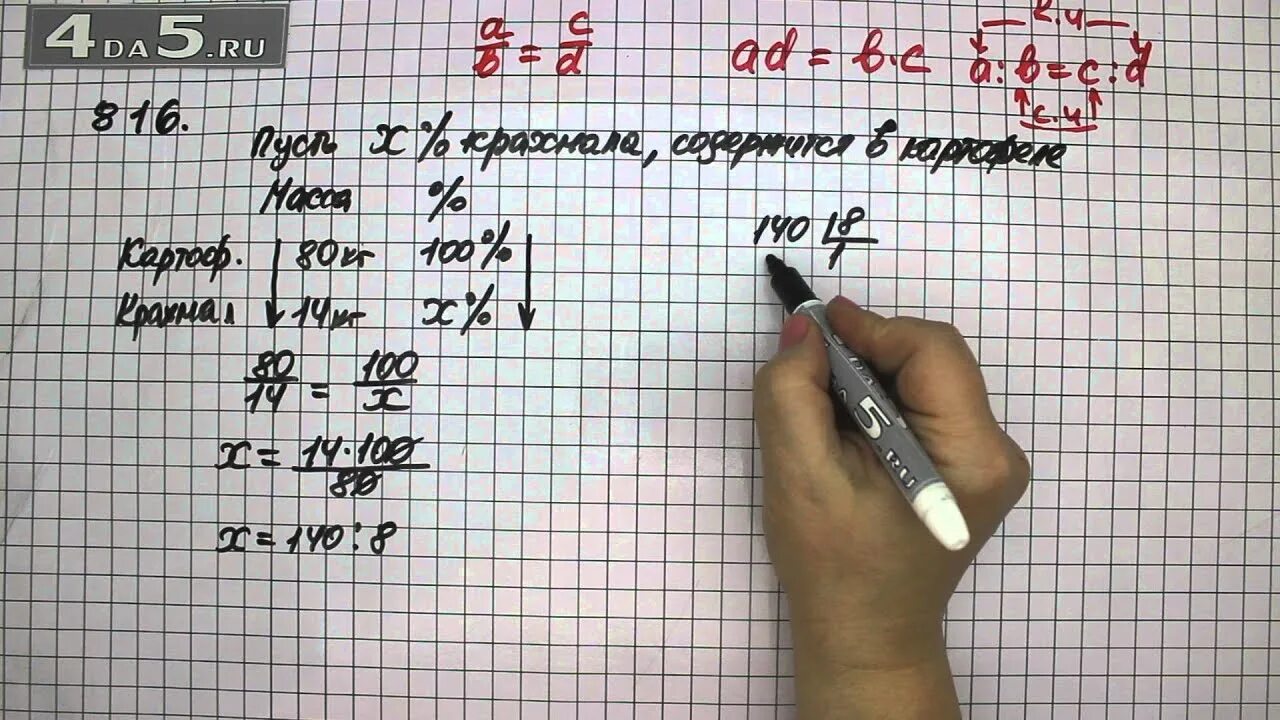 4DA5.RU
a/b = c/d
ad = b·c
к.ч
a : b = c : d
с.ч
816.
Пусть X % крахмала, содержится в картофеле
Масса %
Картоф. 80 кг 100%
Крахмал 14 кг X%
80/14 = 100/x
x = 14·100/80
x = 140 : 8
140 8
1
5.RU